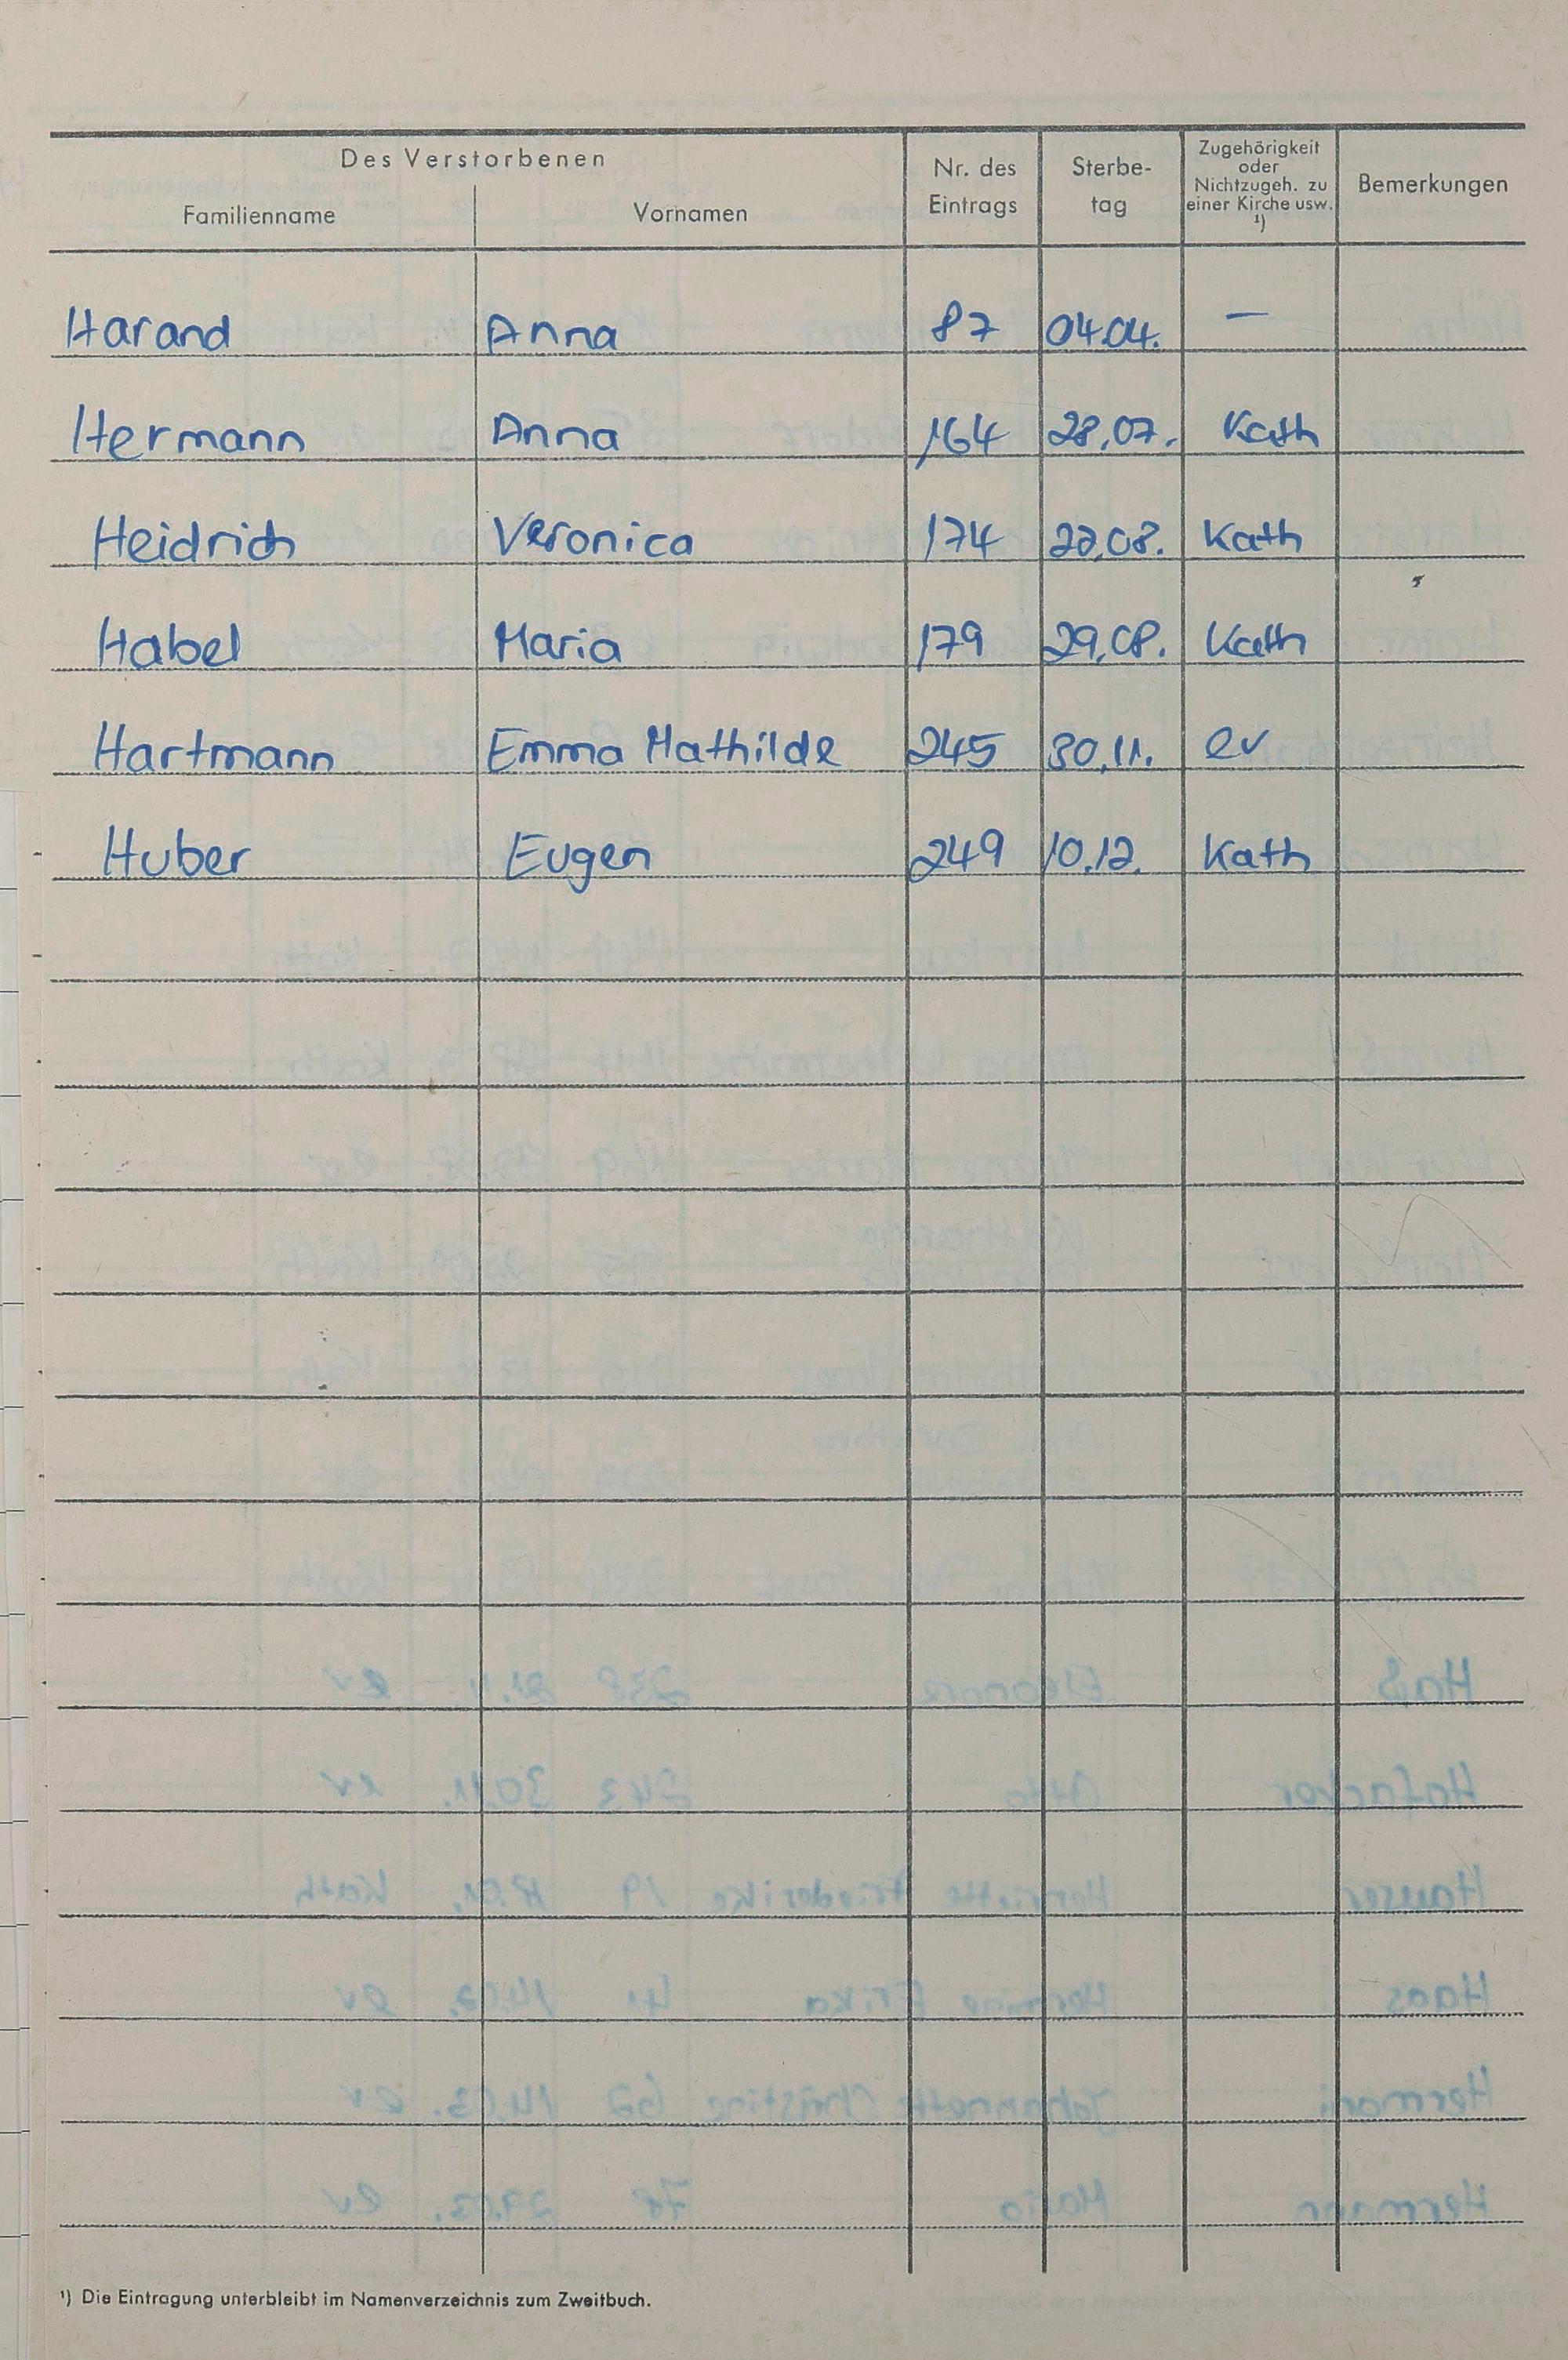 Des Verstorbenen
Familienname Vornamen Nr. des Eintrags Sterbe-tag Zugehörigkeit oder Nichtzugeh. zu einer Kirche usw. ¹) Bemerkungen
Harand Anna 87 04.04. —
Hermann Anna 164 28.07. Kath
Heidrich Veronica 174 22.08. Kath
Habel Maria 179 29.08. Kath
Hartmann Emma Mathilde 245 30.11. ev
Huber Eugen 249 10.12. Kath
¹) Die Eintragung unterbleibt im Namenverzeichnis zum Zweitbuch.